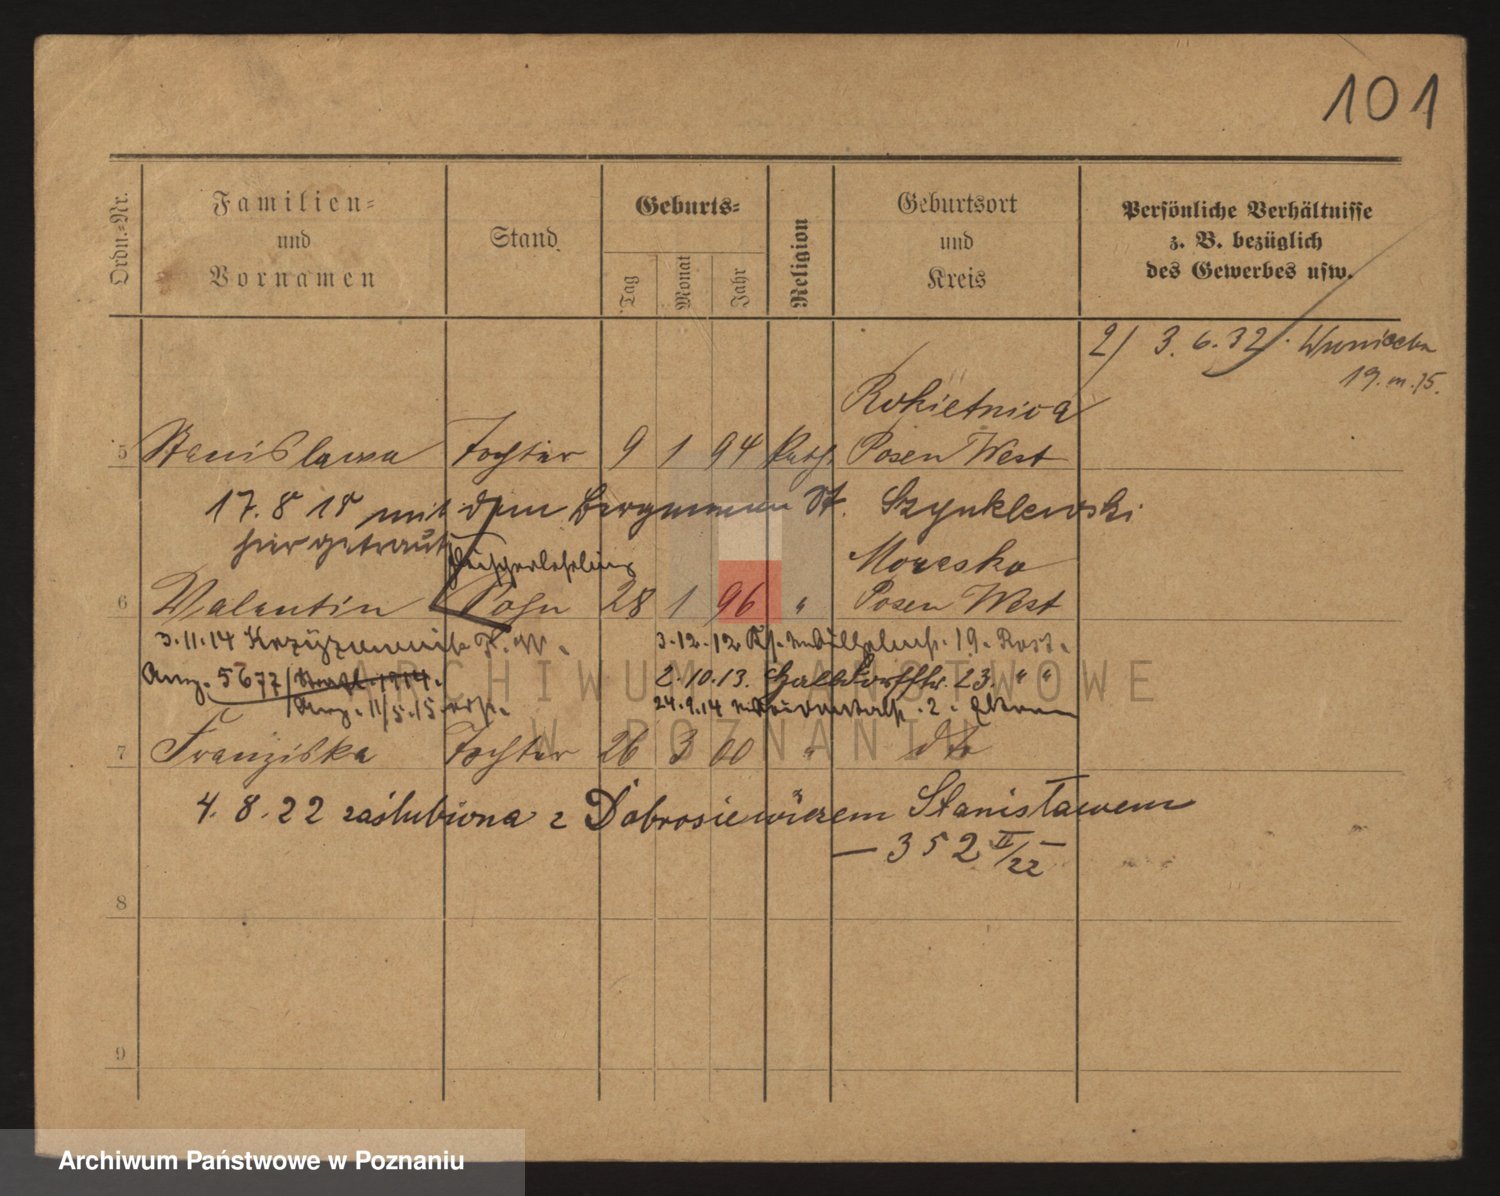 101
Ordn.-Nr.
Familien-
und
Vornamen
Stand
Geburts-
Tag
Monat
Jahr
Religion
Geburtsort
und
Kreis
Persönliche Verhältnisse
z. B. bezüglich
des Gewerbes usw.
2) 3. 6. 32.
Rokietnica
5 Stanislawa Tochter 9 1 94 kath. Posen West
17. 8 18 mit dem Bergmann St. Szynklewski
hier getraut
6 Valentin Sohn 28 1 96 " Posen West
3.11.14 3.12.12
5677 / 1914. 2.10.13. 23. " "
11/5.15 24.9.14 2. Eltern
7 Franziska Tochter 26 3 00 " dto
4. 8. 22 zaślubiona z Dobrosiewiczem Stanisławem
— 352 II/22 —
8
9
ARCHIWUM PAŃSTWOWE
W POZNANIU
Archiwum Państwowe w Poznaniu